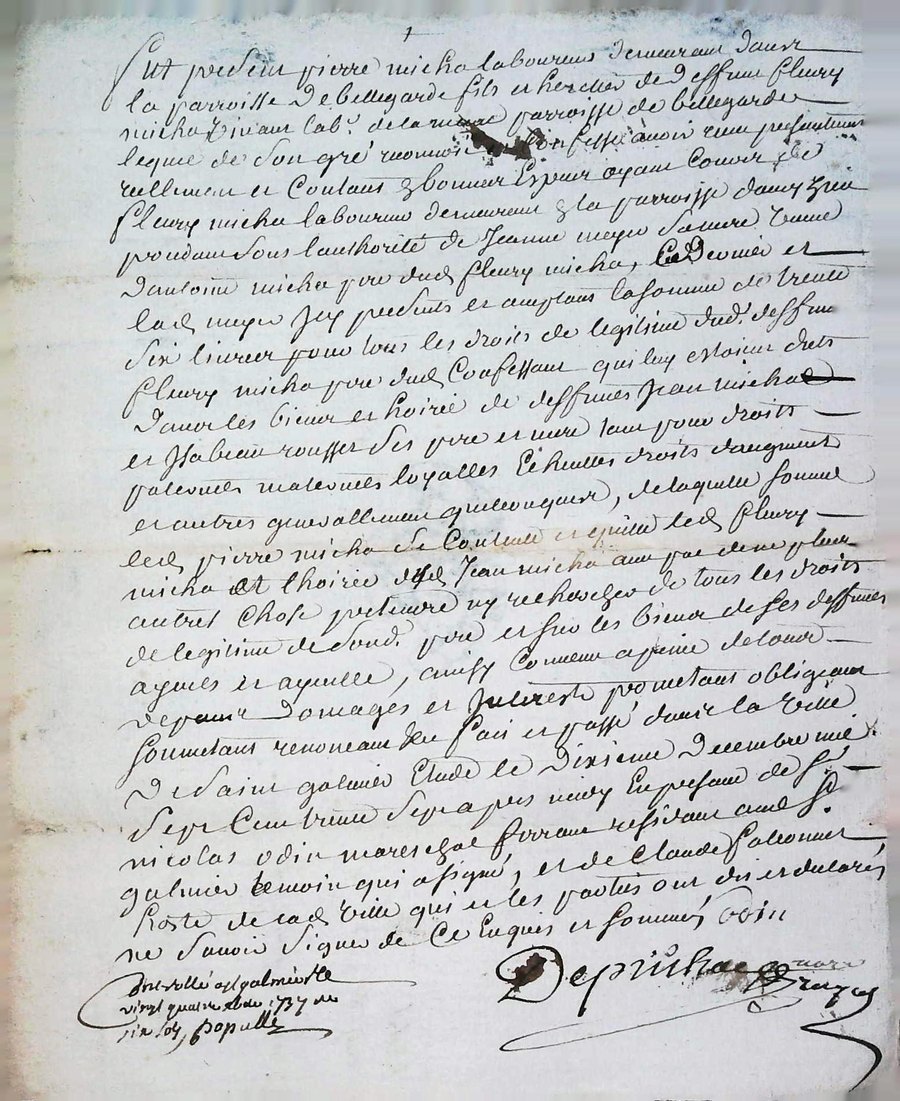 1
fut present pierre micha laboureur demeurant dans
la parroisse de bellegarde fils et heretier de deffunt fleury
micha vivant lab.r de la mesme parroisse de bellegarde
lequel de son gré reconnoit confesse avoir receu presentement
reellement et contant en bonnes espece ayant cours de
fleury micha laboureur demeurant en la parroisse
l'authorité de Jeanne mayer sa mere veuve
d'antoine micha pere dud fleury micha, Ce Dernier et
lad mayer Icy presents et acceptans la somme de trente
six livres pour tous les droits de legitime dud. deffunt
fleury micha pere dud Confessant qui luy estoient deubs
dans les biens et hoirie de deffunts Jean micha
et Isabeau rousset ses pere et mere tant pour droits
paternels maternels loyalles Echeuttes droits d'augment
et autres generallement quelconques, de laquelle somme
led pierre micha se Contente et quitte led fleury
micha et l'hoirie dud Jean micha avec pac de ne plus
autres chose pretendre ny rechercher de tous les droits
de legitime de sond. pere et sur les biens de ses deffunts
ayeuls et ayeulle, ainsy Convenu a peine de tous
depens domages et Interests prometant obligeant
soumetant renonceant &c fait et passé dans la ville
De Saint galmier Etude le dixieme Decembre mil
sept Cent trente sept apres midy En presence de S.r
nicolas odin mareschal ferrant residant aud S.t
galmier temoin qui a signé, et de Claude
hoste de lad ville qui et les parties ont dit et declarés
ne savoir signer de Ce Enquis et sommés odin
not.re
Controllé a St galmier le
vingt quatre xbre 1737 reçu
six sols